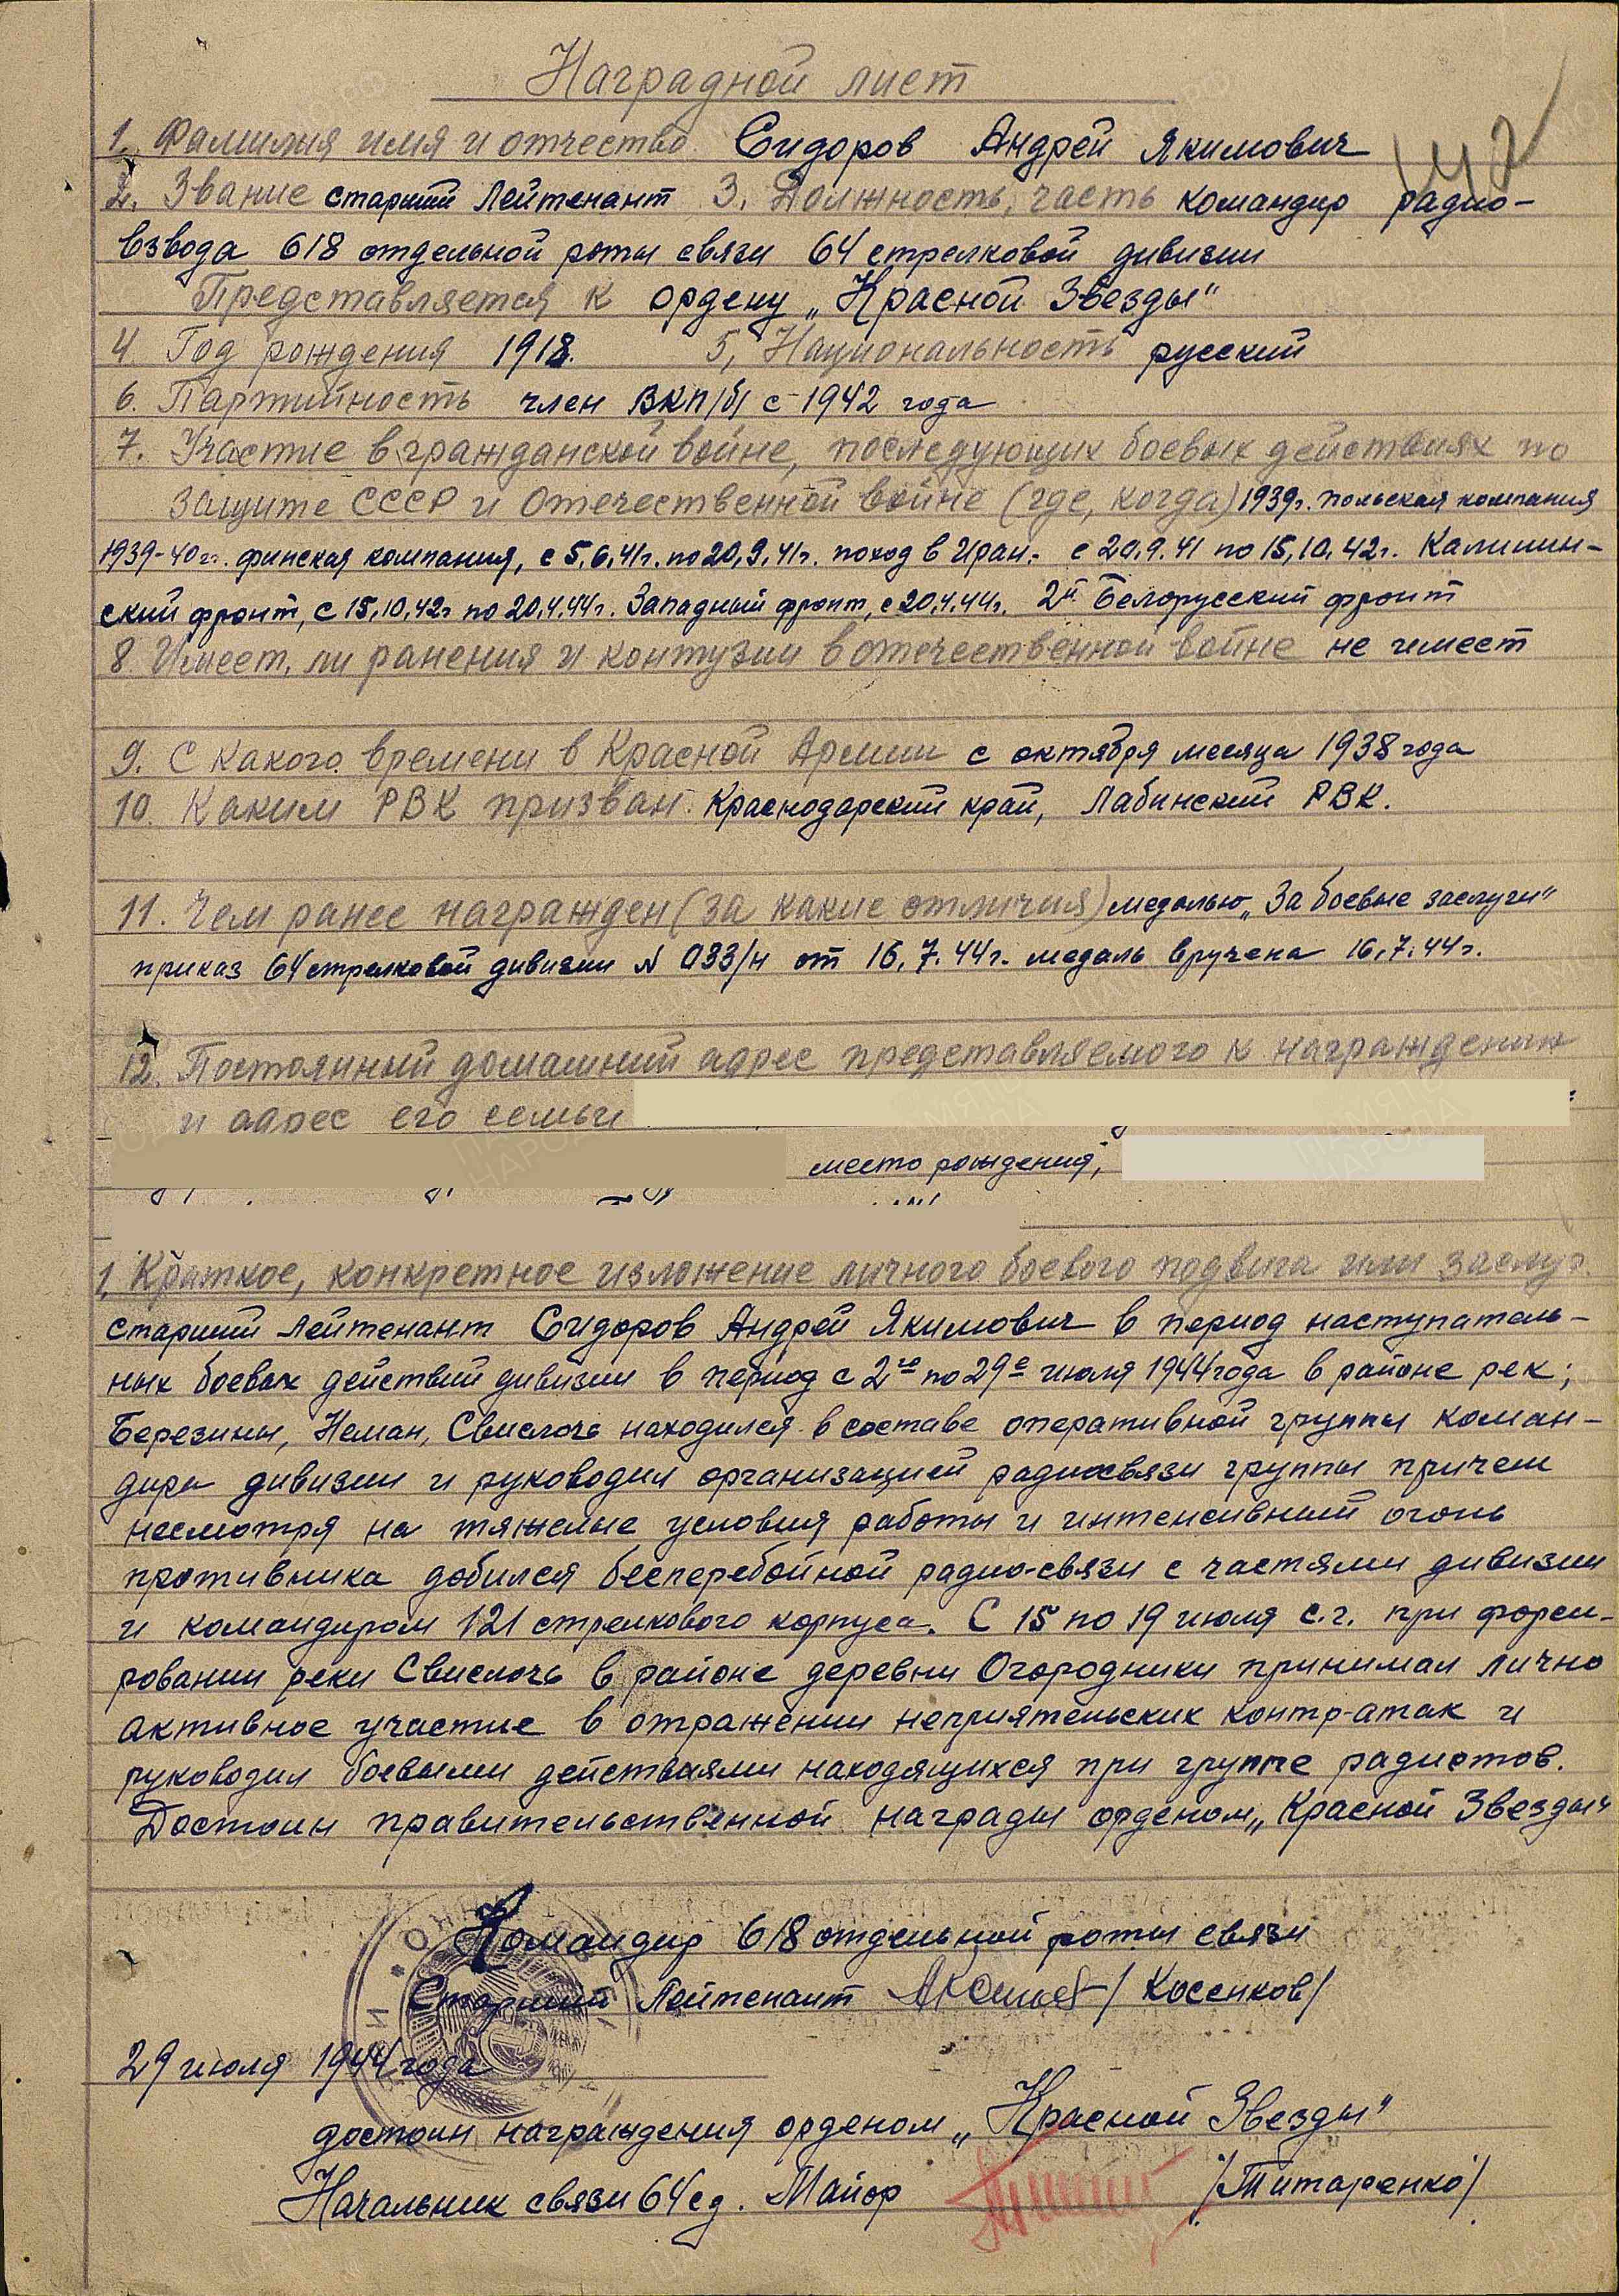 Наградной лист
142
1. Фамилия имя и отчество Сидоров Андрей Якимович
2. Звание старший лейтенант 3. Должность, часть командир радио-
взвода 618 отдельной роты связи 64 стрелковой дивизии
Представляется к ордену „Красной Звезды"
4. Год рождения 1918. 5, Национальность русский
6. Партийность член ВКП/б/ с 1942 года
7. Участие в гражданской войне, последующих боевых действиях по
защите СССР и Отечественной войне (где, когда) 1939г. польская компания
1939-40гг. финская компания, с 5.6.41г. по 20.9.41г. поход в Иран. с 20.9.41 по 15.10.42г. Калинин-
ский фронт, с 15.10.42г по 20.4.44г. Западный фронт, с 20.4.44г. 2й Белорусский фронт
8. Имеет, ли ранения и контузии в отечественной войне не имеет
9. С какого времени в Красной Армии с октября месяца 1938 года
10. Каким РВК призван. Краснодарский край, Лабинский РВК.
11. Чем ранее награжден (за какие отличия) медалью „За боевые заслуги"
приказ 64 стрелковой дивизии N 033/н от 16.7.44г. медаль вручена 16.7.44г.
12. Постоянный домашний адрес представляемого к награждению
и адрес его семьи
место рождения,
1. Краткое, конкретное изложение личного боевого подвига или заслуг.
старший лейтенант Сидоров Андрей Якимович в период наступатель-
ных боевых действий дивизии в период с 2го по 29е июля 1944 года в районе рек;
Березины, Неман, Свислочь находился в составе оперативной группы коман-
дира дивизии и руководил организацией радиосвязи группы причем
несмотря на тяжелые условия работы и интенсивный огонь
противника добился бесперебойной радио-связи с частями дивизии
и командиром 121 стрелкового корпуса. С 15 по 19 июля с.г. при форси-
ровании реки Свислочь в районе деревни Огородники принимал лично
активное участие в отражении неприятельских контр-атак и
руководил боевыми действиями находящихся при группе радистов.
Достоин правительственной награды орденом „Красной Звезды"
Командир 618 отдельной роты связи
Старший Лейтенант /Косенков/
29 июля 1944 года
достоин награждения орденом „Красной Звезды"
Начальник связи 64 сд. Майор /Титаренко/